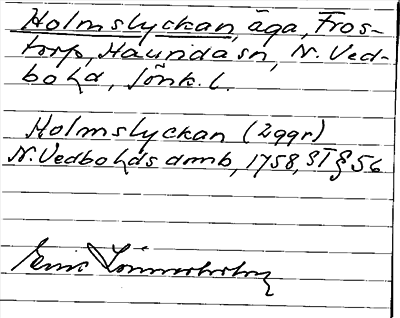 Holmslyckan, äga, Fros-
torp, Haurida sn, N. Ved-
bohd, Jönk. l.
Holmslyckan (2ggr)
N. Vedbohds dmb, 1758, § 56